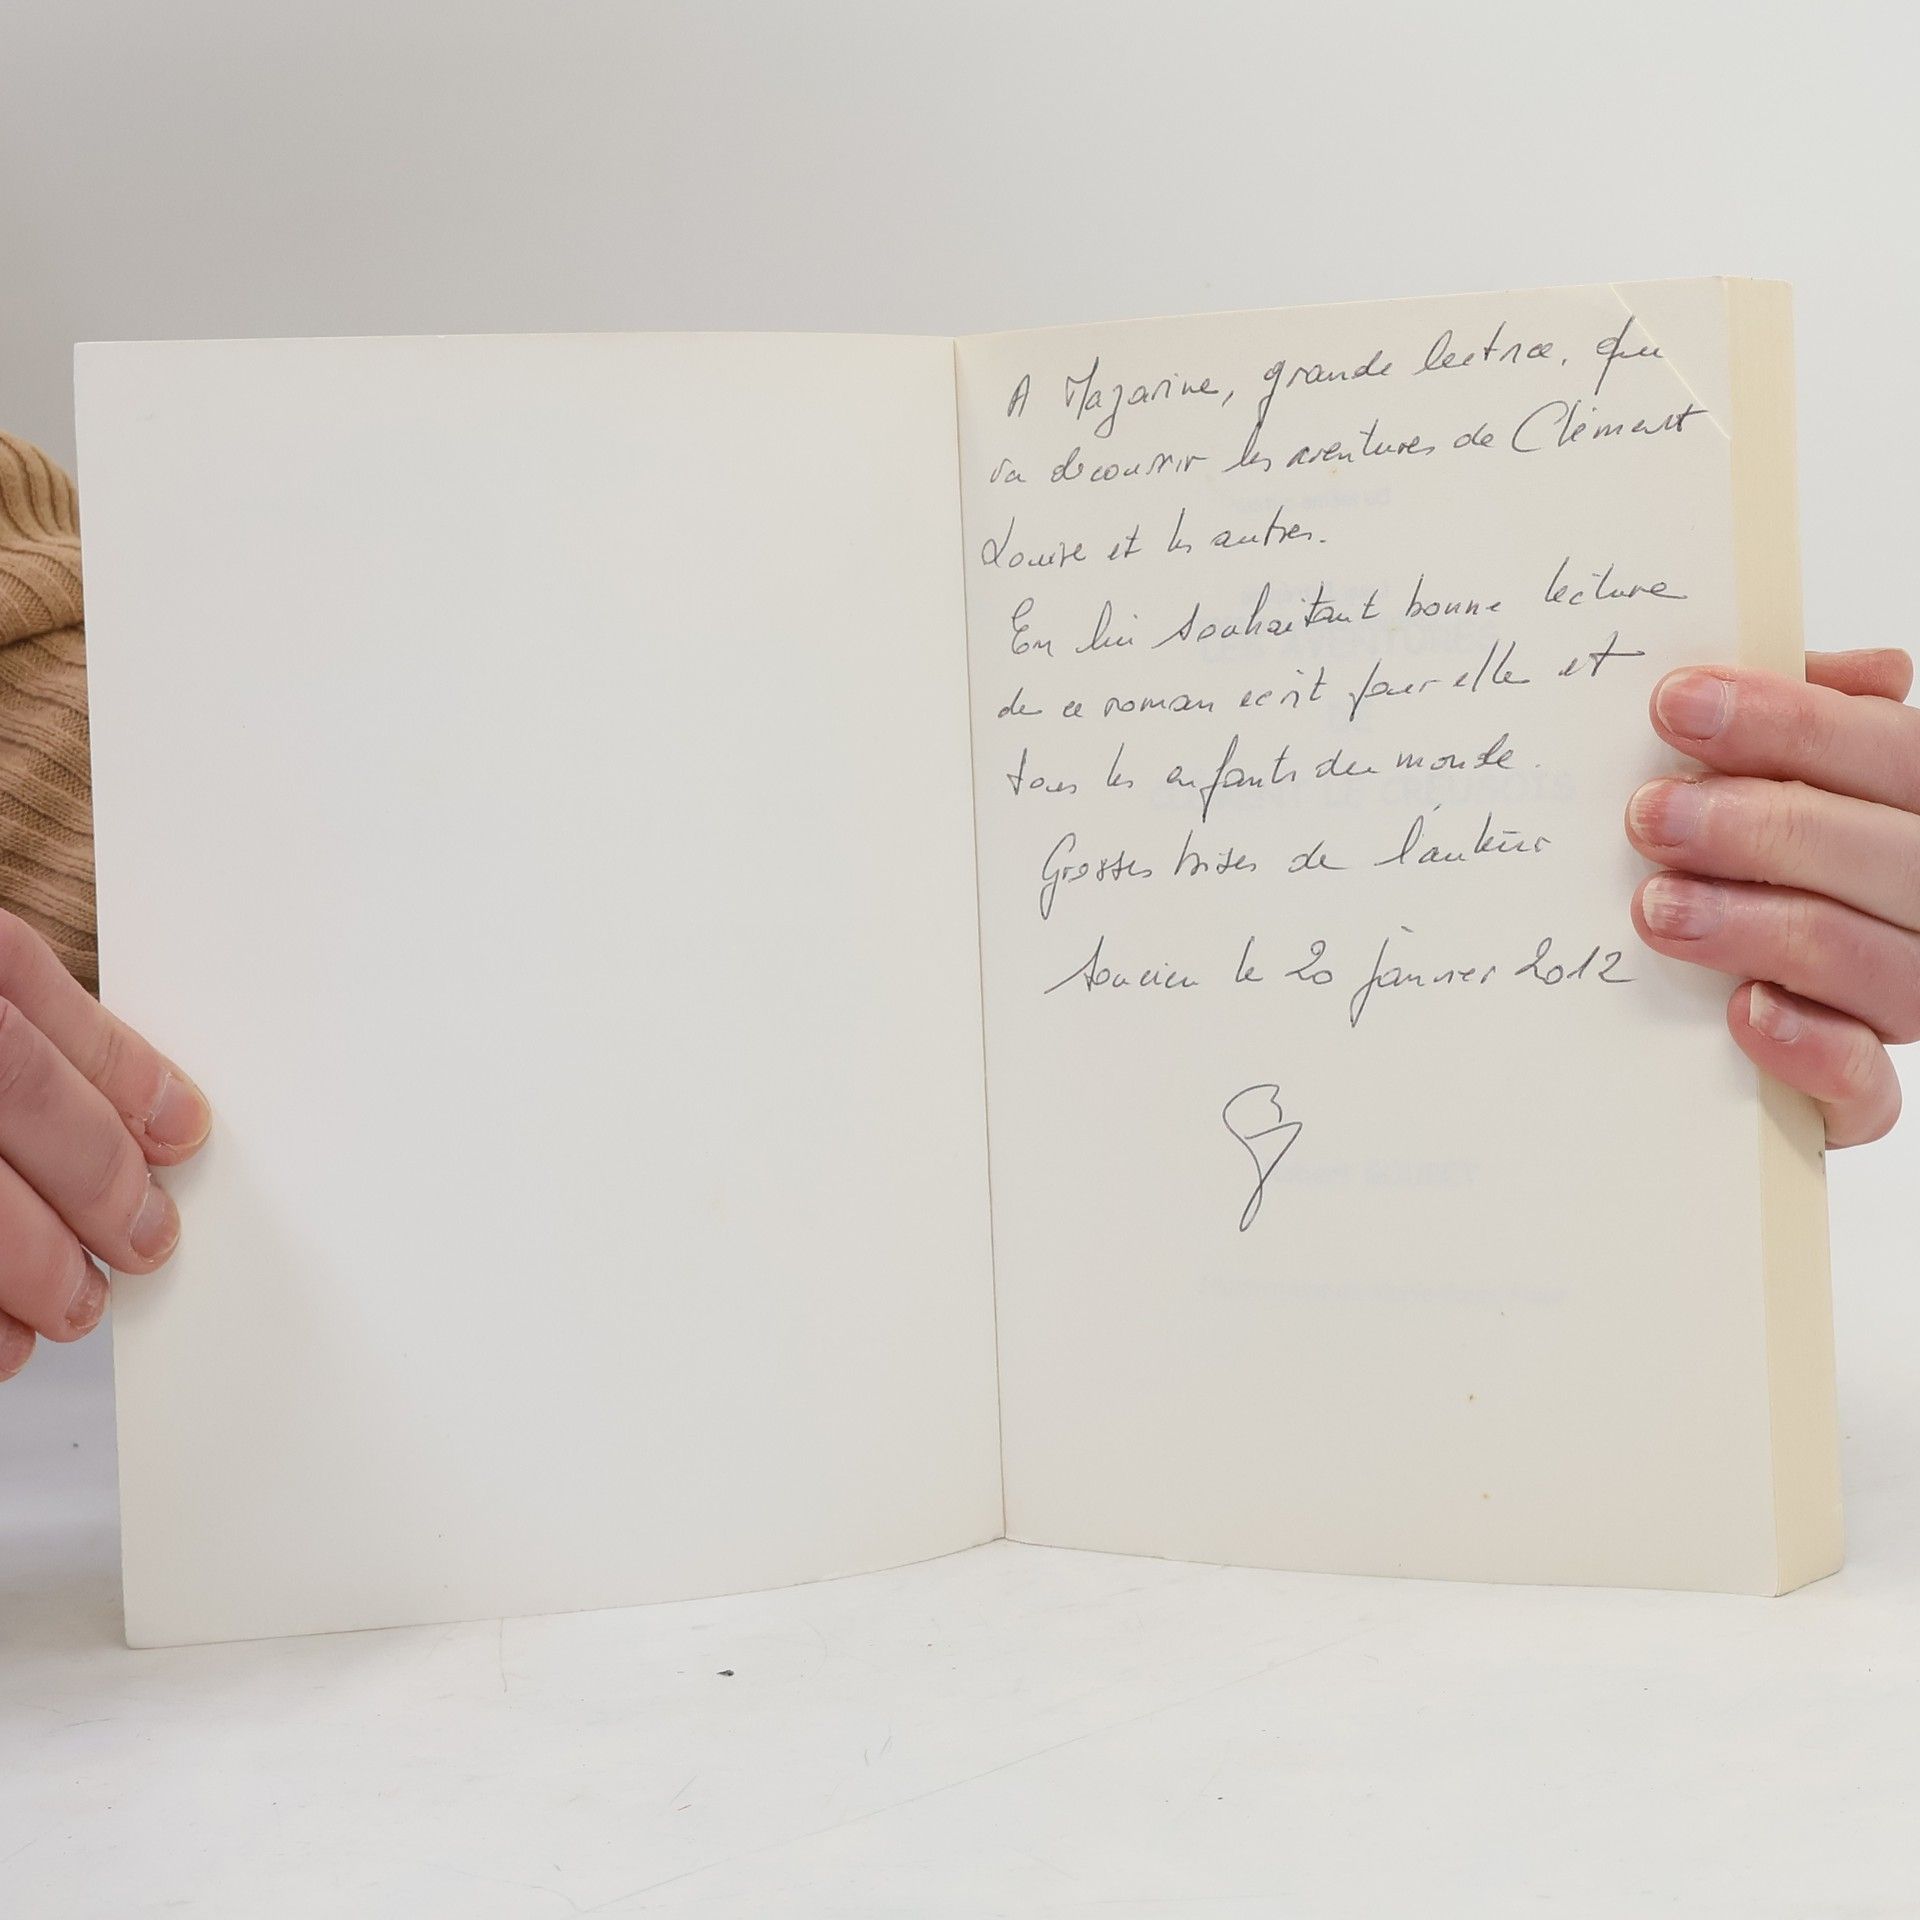 A Mazarine, grande lectrice, qui
va decouvrir les aventures de Clément
Louise et les autres.
En lui souhaitant bonne lecture
de ce roman ecrit pour elle et
tous les enfants du monde.
Grosses bises de l'auteur
Soucieu le 20 janvier 2012